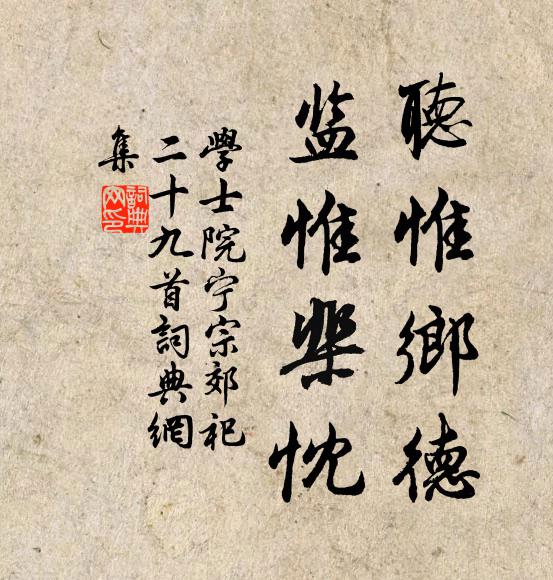 聽惟鄉德
监惟棐忱
學士院宁宗郊祀
二十九首詞典網
集
詞典网印